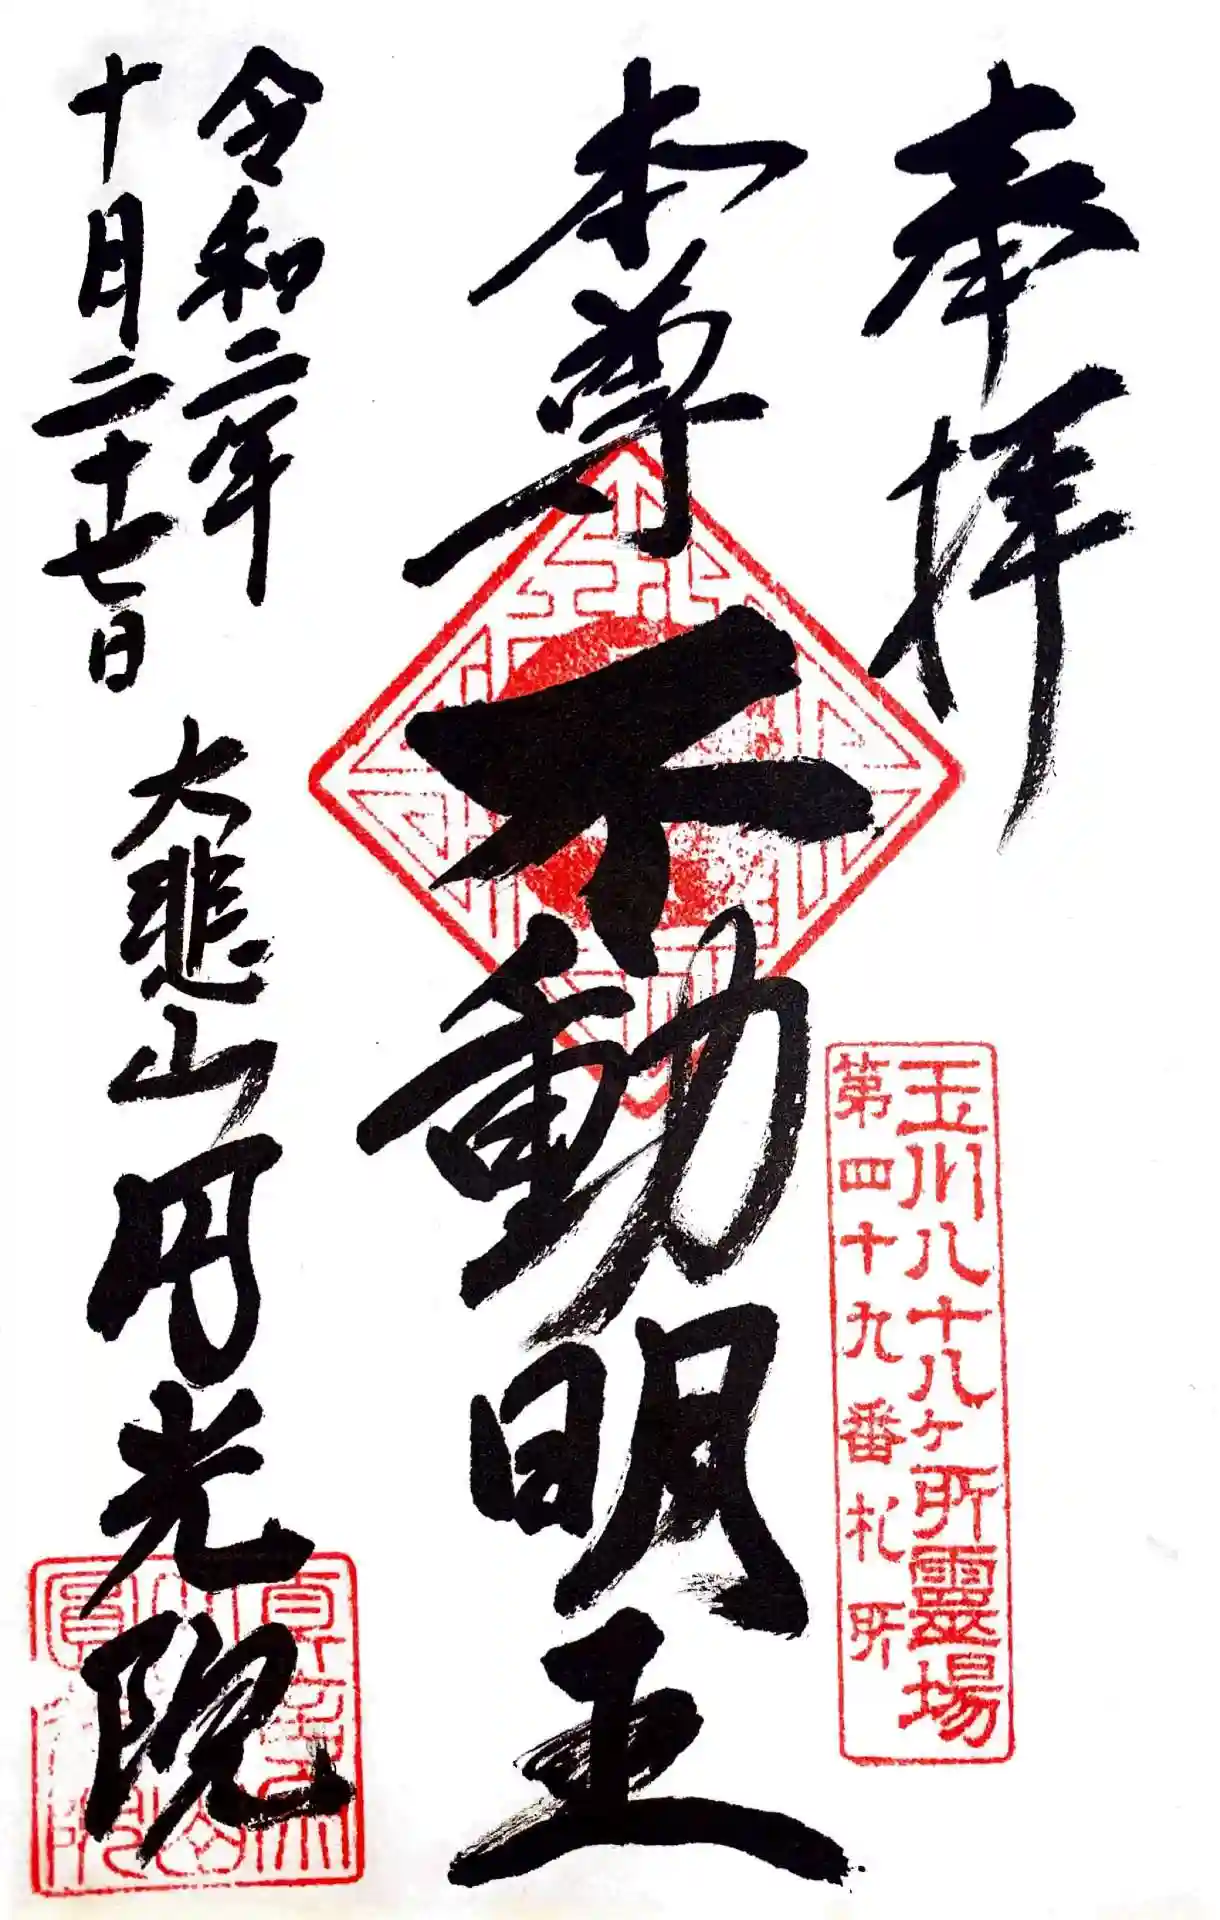 奉拝
玉川八十八ヶ所靈場
第四十九番札所
本尊
不動明王
令和二年
十月二十七日
大悲山円光院